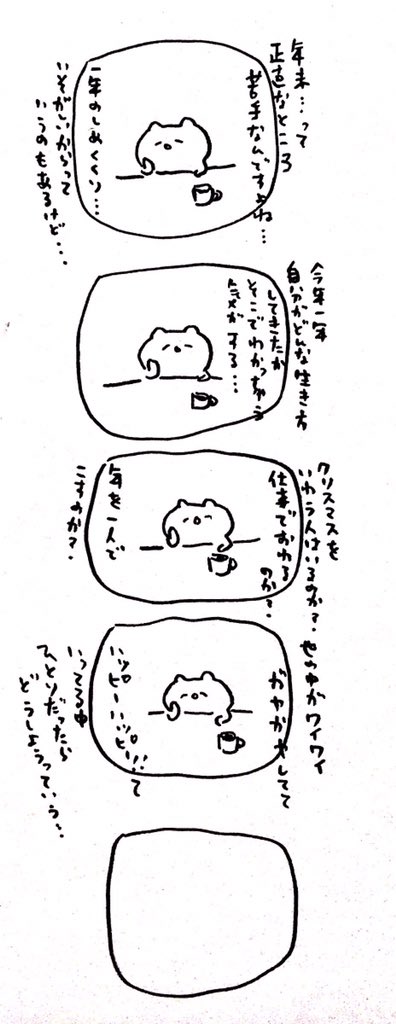 年末…って
正直なところ
苦手なんですよね…
一年のしめくくり…
いそがしいからって
いうのもあるけど…
今年一年
自分がどんな生き方
してきたか
そこでわかっちゃう
気がする…
クリスマスを
いわう人はいるのか?
仕事でおわる
のか?
年を一人で
こすのか?
世の中がワイワイ
ガヤガヤしてて
ハッピーハッピー!!って
いってる中
ひとりだったら
どうしようっていう…